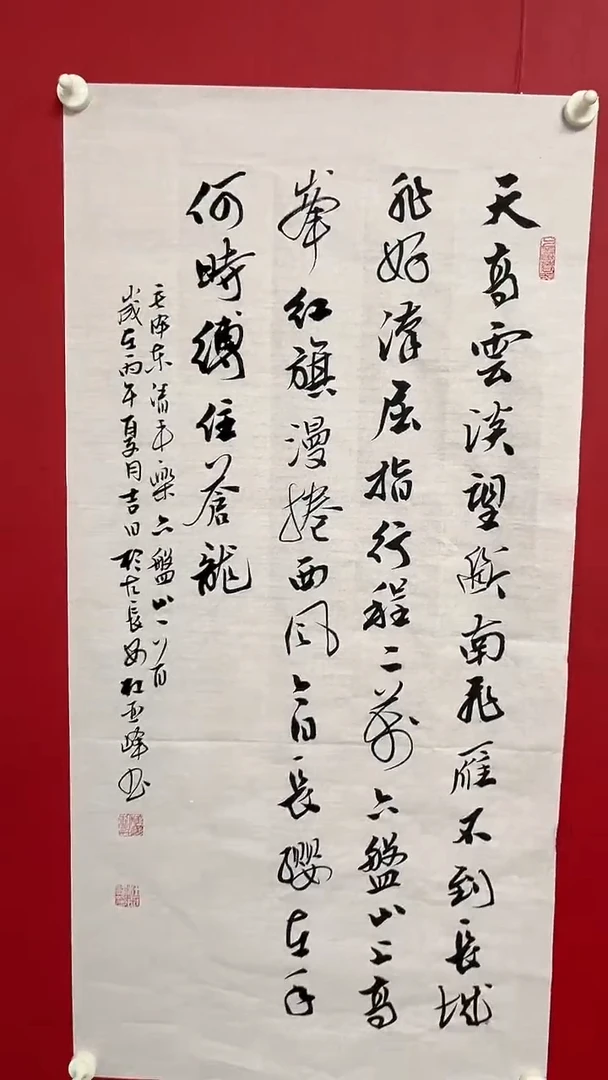 天高雲淡望斷南飛雁不到長城
非好漢屈指行程二萬六盤山上高
峯紅旗漫捲西風今日長纓在手
何時縛住蒼龍
毛澤東清平樂六盤山一首
歲在丙午夏月吉日於古長安杜亞峰书